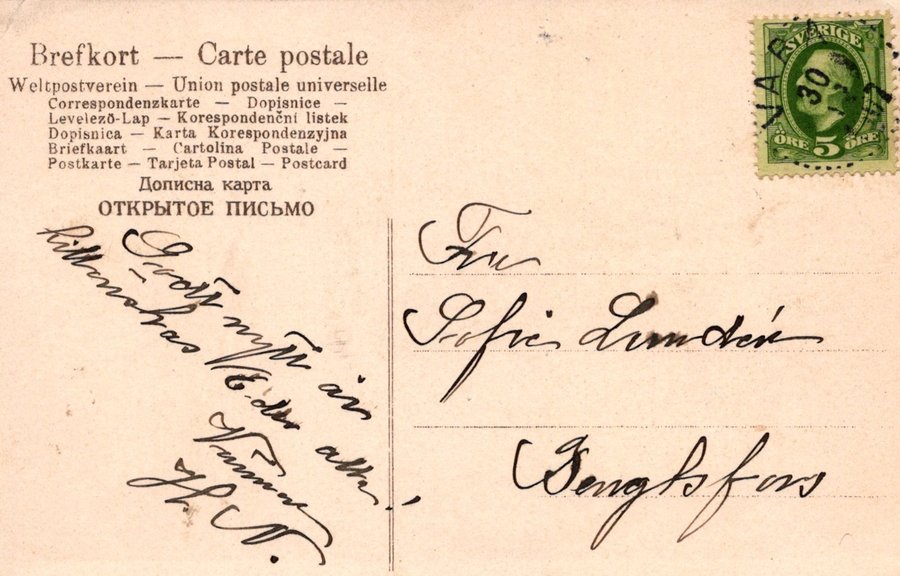 Brefkort — Carte postale
Weltpostverein — Union postale universelle
Correspondenzkarte — Dopisnice —
Levelező-Lap — Korespondenční listek
Dopisnica — Karta Korespondenzyjna
Briefkaart — Cartolina Postale —
Postkarte — Tarjeta Postal — Postcard
Дописна карта
ОТКРЫТОЕ ПИСЬМО
SVERIGE
ÖRE 5 ÖRE
30
Godt nytt år
tillönskas Eder alla!
H. N.
Fru
Sofie Lundén
Bengtsfors